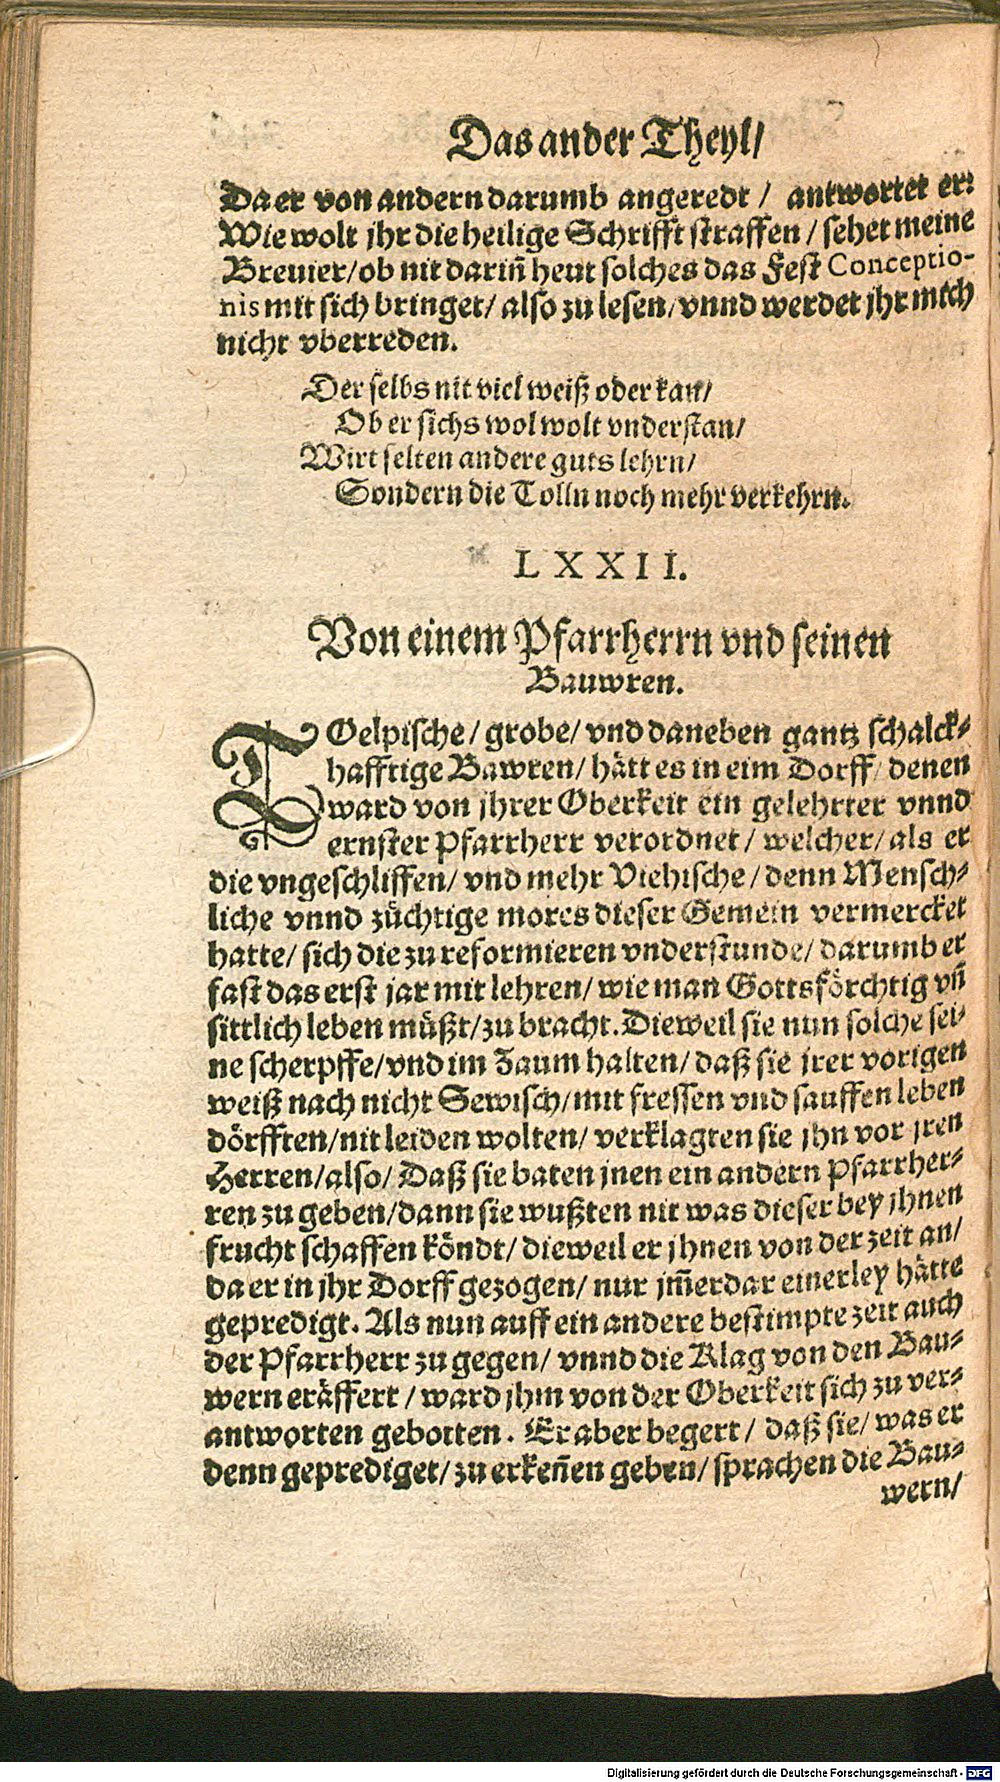 Das ander Theyl/
Da er von andern darumb angeredt / antwortet er:
Wie wolt jhr die heilige Schrifft straffen / sehet meine
Breuier/ ob nit dariñ heut solches das Fest Conceptio-
nis mit sich bringet/ also zu lesen/ vnnd werdet jhr mich
nicht vberreden.
Der selbs nit viel weiß oder kan/
Ob er sichs wol wolt vnderstan/
Wirt selten andere guts lehrn/
Sondern die Tolln noch mehr verkehrn.
LXXII.
Von einem Pfarrherrn vnd seinen
Bauwren.
TOelpische/ grobe/ vnd daneben gantz schalck-
hafftige Bawren/ hätt es in eim Dorff/ denen
ward von jhrer Oberkeit ein gelehrter vnnd
ernster Pfarrherr verordnet/ welcher/ als er
die vngeschliffen/ vnd mehr Viehische/ denn Mensch-
liche vnnd züchtige mores dieser Gemein vermercket
hatte/ sich die zu reformieren vnderstunde/ darumb er
fast das erst jar mit lehren/ wie man Gottsförchtig vñ
sittlich leben müßt/ zu bracht. Dieweil sie nun solche sei-
ne scherpffe/ vnd im Zaum halten/ daß sie jrer vorigen
weiß nach nicht Sewisch/ mit fressen vnd sauffen leben
dörfften/ nit leiden wolten/ verklagten sie jhn vor jren
Herren/ also/ Daß sie baten jnen ein andern Pfarrher-
ren zu geben/ dann sie wußten nit was dieser bey jhnen
frucht schaffen köndt/ dieweil er jhnen von der zeit an/
da er in jhr Dorff gezogen/ nur jm̃erdar einerley hätte
gepredigt. Als nun auff ein andere bestimpte zeit auch
der Pfarrherr zu gegen/ vnnd die Klag von den Bau-
wern eräffert / ward jhm von der Oberkeit sich zu ver-
antworten gebotten. Er aber begert/ daß sie/ was er
denn geprediget/ zu erkeñen geben/ sprachen die Bau-
wern/
Digitalisierung gefördert durch die Deutsche Forschungsgemeinschaft - DFG